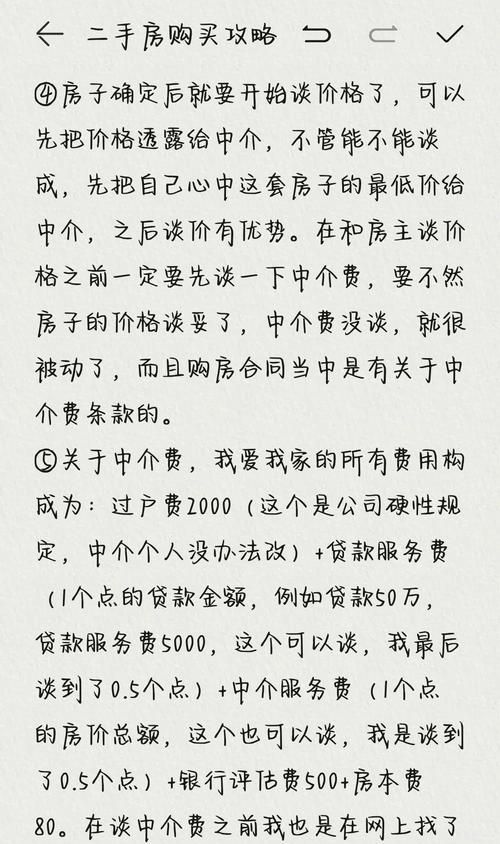 二手房购买攻略
④房子确定后就要开始谈价格了，可以
先把价格透露给中介，不管能不能谈
成，先把自己心中这套房子的最低价给
中介，之后谈价有优势。在和房主谈价
格之前一定要先谈一下中介费，要不然
房子的价格谈妥了，中介费没谈，就很
被动了，而且购房合同当中是有关于中
介费条款的。
⑤关于中介费，我爱我家的所有费用构
成为：过户费2000（这个是公司硬性规
定，中介个人没办法改）+贷款服务费
（1个点的贷款金额，例如贷款50万，
贷款服务费5000，这个可以谈，我最后
谈到了0.5个点）+中介服务费（1个点
的房价总额，这个也可以谈，我是谈到
了0.5个点）+银行评估费500+房本费
80。在谈中介费之前我也是在网上找了